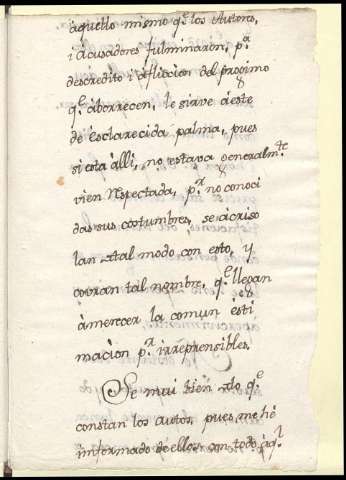 aquello mismo q.e los Autores,
i acusadores fulminaron, p.a
descredito i afliccion del proximo
q.e aborrecen, le sirve a este
de esclarecida palma, pues
si esta alli, no estava generalm.te
vien respectada, p.r no conoci
das sus costumbres, se acriso
lan tal modo con esto, y
covran tal nombre, q.e llegan
à merecer la comun esti
macion p.r irreprensibles.
Se mui bien lo q.e
constan los autos, pues me hé
informado de ellos con todo aq.l